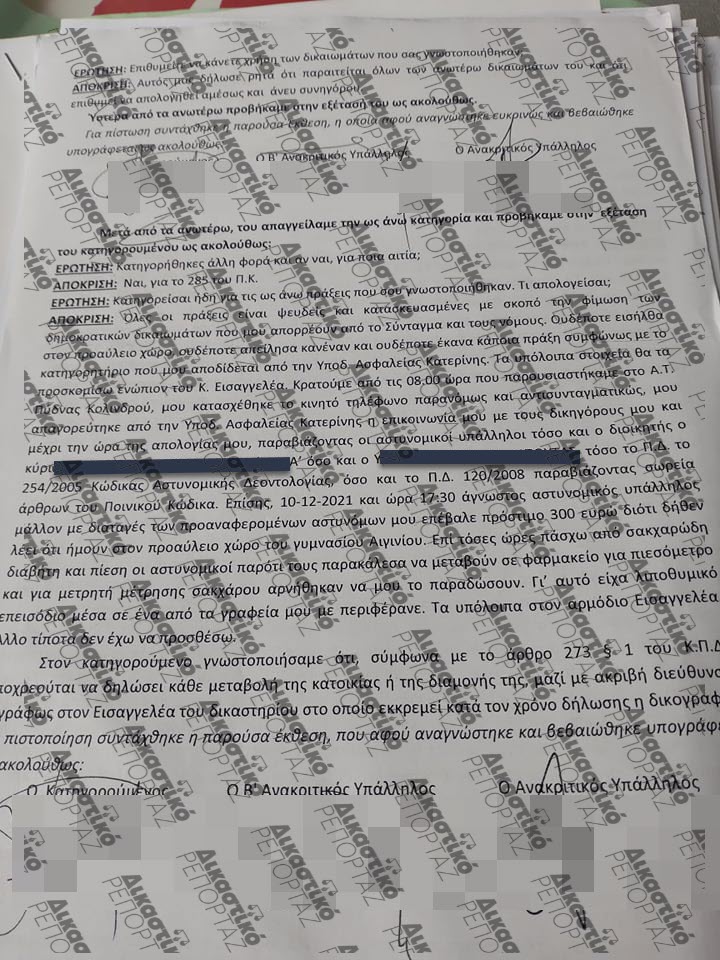 ΕΡΩΤΗΣΗ: Επιθυμείτε να κάνετε χρήση των δικαιωμάτων που σας γνωστοποιήθηκαν;
ΑΠΟΚΡΙΣΗ: Αυτός μας δήλωσε ρητά ότι παραιτείται όλων των ανωτέρω δικαιωμάτων του και ότι
επιθυμεί να απολογηθεί αμέσως και άνευ συνηγόρου.
Ύστερα από τα ανωτέρω προβήκαμε στην εξέτασή του ως ακολούθως.
Για πίστωση συντάχθηκε η παρούσα έκθεση, η οποία αφού αναγνώστηκε ευκρινώς και βεβαιώθηκε
υπογράφεται ως ακολούθως:
Ο Β' Ανακριτικός Υπάλληλος Ο Ανακριτικός Υπάλληλος
Μετά από τα ανωτέρω, του απαγγείλαμε την ως άνω κατηγορία και προβήκαμε στην εξέταση
του κατηγορουμένου ως ακολούθως:
ΕΡΩΤΗΣΗ: Κατηγορήθηκες άλλη φορά και αν ναι, για ποια αιτία;
ΑΠΟΚΡΙΣΗ: Ναι, για το 285 του Π.Κ.
ΕΡΩΤΗΣΗ: Κατηγορείσαι ήδη για τις ως άνω πράξεις που σου γνωστοποιήθηκαν. Τι απολογείσαι;
ΑΠΟΚΡΙΣΗ: Όλες οι πράξεις είναι ψευδείς και κατασκευασμένες με σκοπό την φίμωση των
δημοκρατικών δικαιωμάτων που μου απορρέουν από το Σύνταγμα και τους νόμους. Ουδέποτε εισήλθα
στον προαύλειο χώρο, ουδέποτε απείλησα κανέναν και ουδέποτε έκανα κάποια πράξη συμφώνως με το
κατηγορητήριο που μου αποδίδεται από την Υποδ. Ασφαλείας Κατερίνης. Τα υπόλοιπα στοιχεία θα τα
προσκομίσω ενώπιον του κ. Εισαγγελέα. Κρατούμε από τις 08.00 ώρα που παρουσιαστήκαμε στο Α.Τ.
Πύδνας Κολινδρού, μου κατασχέθηκε το κινητό τηλέφωνο παρανόμως και αντισυνταγματικώς, μου
απαγορεύτηκε από την Υποδ. Ασφαλείας Κατερίνης η επικοινωνία μου με τους δικηγόρους μου και
μέχρι την ώρα της απολογίας μου, παραβιάζοντας οι αστυνομικοί υπάλληλοι τόσο και ο διοικητής ο
κύρι Α' όσο και ο Υ τόσο το Π.Δ. το
254/2005 Κώδικας Αστυνομικής Δεοντολογίας, όσο και το Π.Δ. 120/2008 παραβιάζοντας σωρεία
άρθρων του Ποινικού Κώδικα. Επίσης, 10-12-2021 και ώρα 17:30 άγνωστος αστυνομικός υπάλληλος
μάλλον με διαταγές των προαναφερομένων αστυνόμων μου επέβαλε πρόστιμο 300 ευρώ διότι δήθεν
λέει ότι ήμουν στον προαύλειο χώρο του γυμνασίου Αιγινίου. Επί τόσες ώρες πάσχω από σακχαρώδη
διαβήτη και πίεση οι αστυνομικοί παρότι τους παρακάλεσα να μεταβούν σε φαρμακείο για πιεσόμετρο
και για μετρητή μέτρησης σακχάρου αρνήθηκαν να μου το παραδώσουν. Γι' αυτό είχα λιποθυμικό
επεισόδιο μέσα σε ένα από τα γραφεία μου με περιφέρανε. Τα υπόλοιπα στον αρμόδιο Εισαγγελέα
λλο τίποτα δεν έχω να προσθέσω.
Στον κατηγορούμενο γνωστοποιήσαμε ότι, σύμφωνα με το άρθρο 273 § 1 του Κ.Π.Δ
ποχρεούται να δηλώσει κάθε μεταβολή της κατοικίας ή της διαμονής της, μαζί με ακριβή διεύθυνσ
γράφως στον Εισαγγελέα του δικαστηρίου στο οποίο εκκρεμεί κατά τον χρόνο δήλωσης η δικογραφ
πιστοποίηση συντάχθηκε η παρούσα έκθεση, που αφού αναγνώστηκε και βεβαιώθηκε υπογράφε
ακολούθως:
Ο Κατηγορούμενος Ο Β' Ανακριτικός Υπάλληλος Ο Ανακριτικός Υπάλληλος
Δικαστικό
ΡΕΠΟΡΤΑΖ